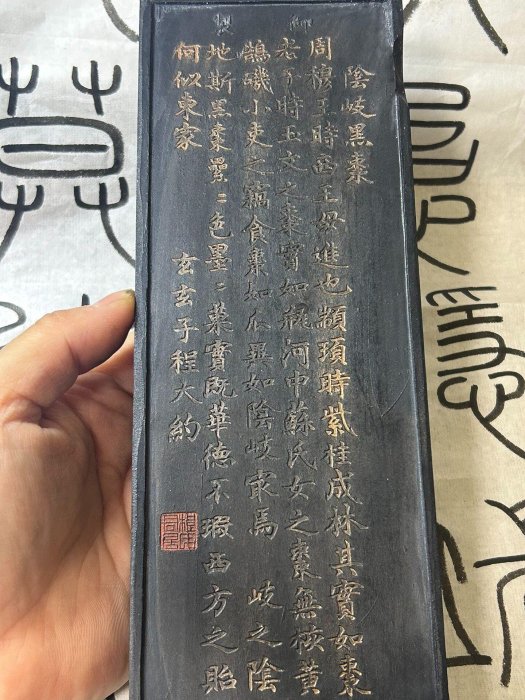 御製
陰岐黑棗
周穆王時西王母進也顓頊時紫桂成林其實如棗
老子時玉文之棗實如瓶河中蘇氏女之棗無核黃
鶴磯小吏之竊食棗如瓜異如陰岐寂焉 岐之陰
地斯黑棗纍〻色墨〻葉實既華德不瑕西方之貽
何似東家
玄玄子程大約